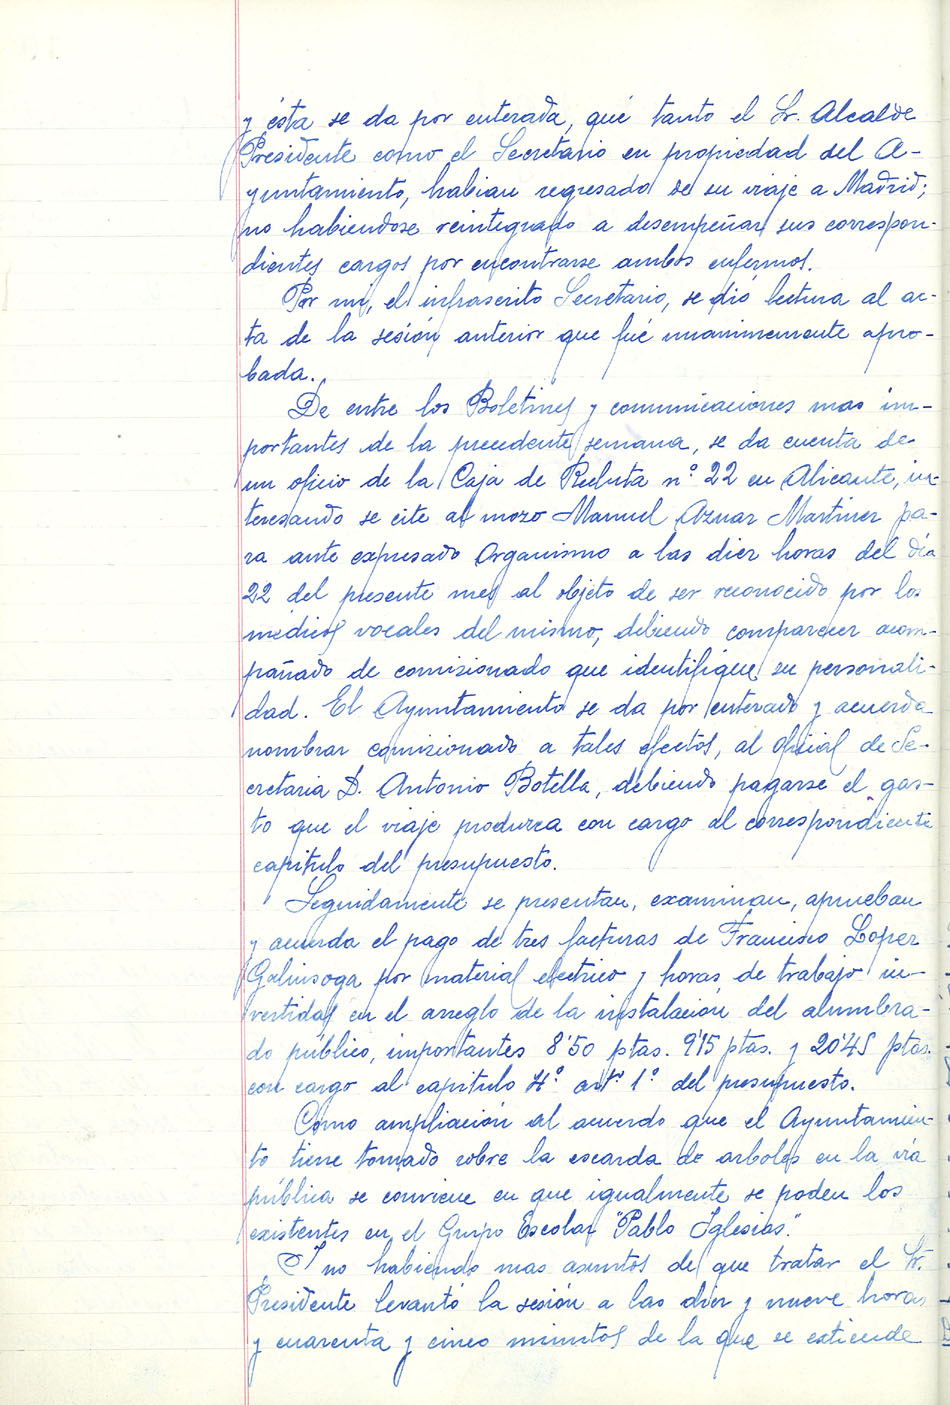 y ésta se da por enterada, que tanto el Sr. Alcalde
Presidente como el Secretario en propiedad del A-
yuntamiento, habian regresado de su viaje a Madrid;
no habiendose reintegrado a desempeñar sus correspon-
dientes cargos por encontrarse ambos enfermos.
Por mi, el infrascrito Secretario, se dió lectura al ac-
ta de la sesión anterior que fué unanimemente apro-
bada.
De entre los Boletines y comunicaciones mas im-
portantes de la precedente semana, se da cuenta de
un oficio de la Caja de Recluta nº 22 en Alicante, in-
teresando se cite al mozo Manuel Aznar Martinez pa-
ra ante expresado Organismo a las diez horas del día
22 del presente mes al objeto de ser reconocido por los
medicos vocales del mismo, debiendo comparecer acom-
pañado de comisionado que identifique su personali-
dad. El Ayuntamiento se da por enterado y acuerda
nombrar comisionado a tales efectos, al Oficial de Se-
cretaria D. Antonio Botella, debiendo pagarse el gas-
to que el viaje produzca con cargo al correspondiente
capitulo del presupuesto.
Seguidamente se presentan, examinan, aprueban
y acuerda el pago de tres facturas de Francisco Lopez
Galinsoga por material electrico y horas de trabajo in-
vertidas en el arreglo de la instalación del alumbra-
do público, importantes 8'50 ptas. 9'15 ptas. y 20'45 ptas.
con cargo al capitulo 4º artº 1º del presupuesto.
Como ampliación al acuerdo que el Ayuntamien-
to tiene tomado sobre la escarda de arboles en la vía
pública se conviene en que igualmente se poden los
existentes en el Grupo Escolar "Pablo Iglesias".
Y no habiendo mas asuntos de que tratar el Sr.
Presidente levantó la sesión a las diez y nueve horas
y cuarenta y cinco minutos de la que se extiende